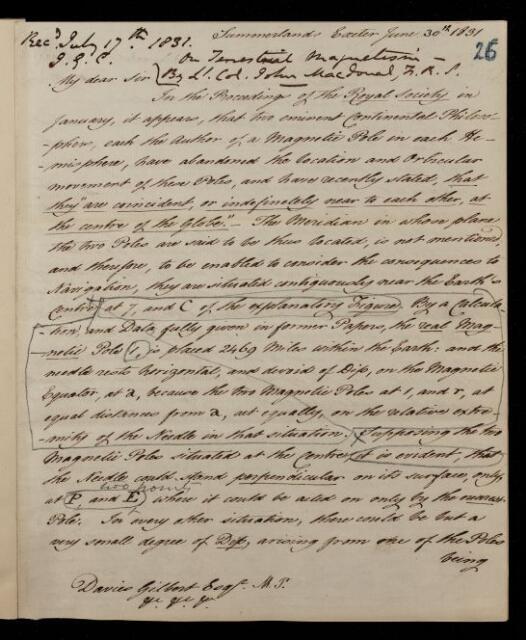 Summerlands Exeter June 30th 1831
Recd July 17th 1831.
26
J.G.C.
On Terrestrial Magnetism —
My dear Sir By Lt. Col. John Macdonald, F.R.S.
In the Proceedings of the Royal Society in
January, it appears, that two eminent Continental Philoso-
-phers, each the Author of a Magnetic Pole in each He-
-misphere, have abandoned the location and Orbicular
movement of these Poles, and have recently stated, that
they "are coincident, or indefinitely near to each other, at
the centre of the Globe." — The Meridian in whose plane
the two Poles are said to be thus located, is not mentioned,
and therefore, to be enabled to consider the consequences to
Navigation, they are situated contiguously near the Earth's
Centre at 7, and C of the explanatory Figure. By a Calcula-
-tion, and Data, fully given in former Papers, the real Mag-
-netic Pole is placed 2469 Miles within the Earth: and the
needle rests horizontal, and devoid of Dip, on the Magnetic
Equator, at a, because the two Magnetic Poles at 1, and r, at
equal distances from a, act equally, on the relative extre-
-mity of the Needle in that situation. Supposing the two
Magnetic Poles situated at the Centre, it is evident, that
the Needle could stand perpendicular on its surface, only
two points
at P, and E, where it could be acted on only by the nearest
Pole. In every other situation, there could be but a
very small degree of Dip, arising from one of the Poles
being
Davies Gilbert Esqr. M.P.